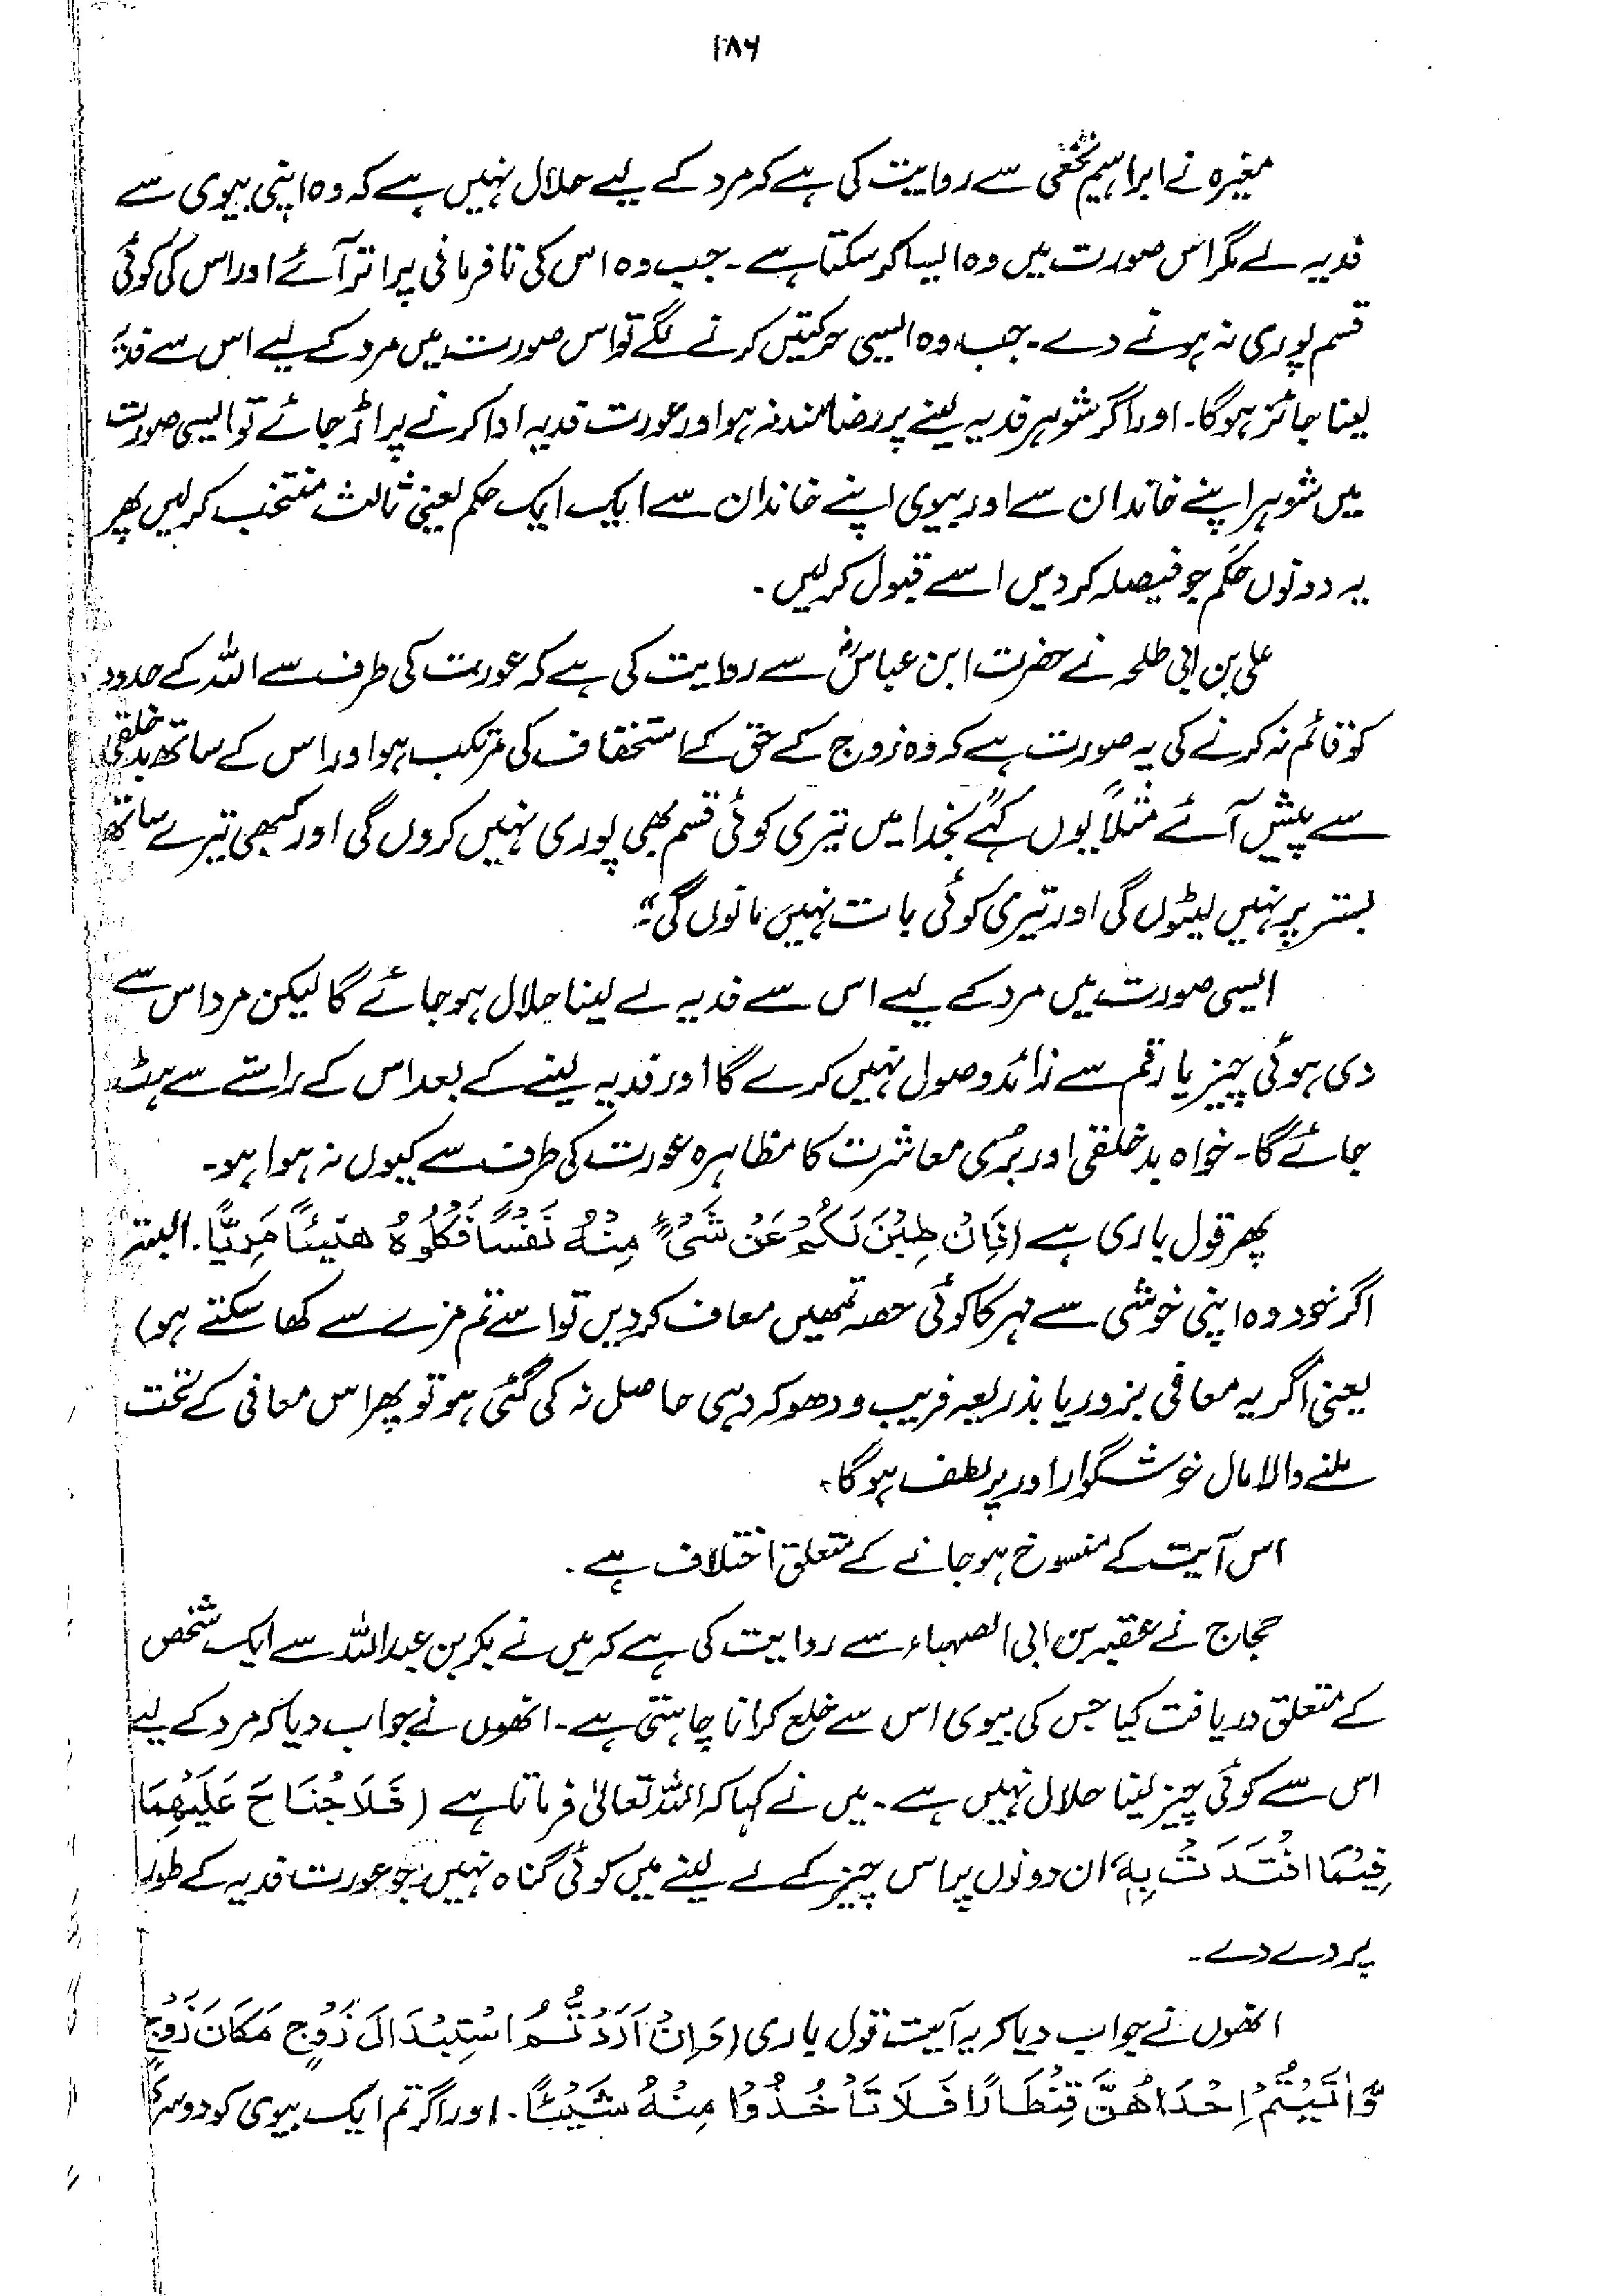 ۱۸۶
مغیرہ نے ابراہیم نخعی سے روایت کی ہے کہ مرد کے لیے حلال نہیں ہے کہ وہ اپنی بیوی سے
فدیہ لے مگر اس صورت میں وہ ایسا کر سکتا ہے۔ جب وہ اس کی نافرمانی پر اتر آئے اور اس کی کوئی
قسم پوری نہ ہونے دے۔ جب وہ ایسی حرکتیں کرنے لگے تو اس صورت میں مرد کے لیے اس سے فدیہ
لینا جائز ہوگا۔ اور اگر شوہر فدیہ لینے پر رضامند نہ ہو اور عورت فدیہ ادا کرنے پر اڑ جائے تو ایسی صورت
میں شوہر اپنے خاندان سے اور بیوی اپنے خاندان سے ایک ایک حکم یعنی ثالث منتخب کر لیں پھر
یہ دونوں حَکَم جو فیصلہ کر دیں اسے قبول کر لیں۔
علی بن ابی طلحہ نے حضرت ابن عباسؓ سے روایت کی ہے کہ عورت کی طرف سے اللہ کے حدود
کو قائم نہ کرنے کی یہ صورت ہے کہ وہ زوج کے حق کے استخفاف کی مرتکب ہو اور اس کے ساتھ بدخلقی
سے پیش آئے مثلاً یوں کہے "بخدا میں تیری کوئی قسم بھی پوری نہیں کروں گی اور کبھی تیرے ساتھ
بستر پر نہیں لیٹوں گی اور تیری کوئی بات نہیں مانوں گی"۔
ایسی صورت میں مرد کے لیے اس سے فدیہ لے لینا حلال ہو جائے گا لیکن مرد اس سے
دی ہوئی چیز یا رقم سے زائد وصول نہیں کرے گا اور فدیہ لینے کے بعد اس کے راستے سے ہٹ
جائے گا۔ خواہ بدخلقی اور بُری معاشرت کا مظاہرہ عورت کی طرف سے کیوں نہ ہوا ہو۔
پھر قول باری ہے (فَاِنْ طِبْنَ لَکُمْ عَنْ شَیْءٍ مِنْہُ نَفْسًا فَکُلُوْہُ ھَنِیْئًا مَرِیْئًا۔ البتہ
اگر خود وہ اپنی خوشی سے مہر کا کوئی حصہ تمھیں معاف کر دیں تو اسے تم مزے سے کھا سکتے ہو)
یعنی اگر یہ معافی بزور یا بذریعہ فریب و دھوکہ دہی حاصل نہ کی گئی ہو تو پھر اس معافی کے تحت
ملنے والا مال خوشگوار اور پر لطف ہوگا۔
اس آیت کے منسوخ ہو جانے کے متعلق اختلاف ہے۔
حجاج نے عقبہ بن ابی الصہباء سے روایت کی ہے کہ میں نے بکر بن عبداللہ سے ایک شخص
کے متعلق دریافت کیا جس کی بیوی اس سے خلع کرانا چاہتی ہے۔ انھوں نے جواب دیا کہ مرد کے لیے
اس سے کوئی چیز لینا حلال نہیں ہے۔ میں نے کہا کہ اللہ تعالیٰ فرماتا ہے (فَلَا جُنَاحَ عَلَیْھِمَا
فِیْمَا افْتَدَتْ بِہٖ ان دونوں پر اس چیز کے لے لینے میں کوئی گناہ نہیں جو عورت فدیہ کے طور
پر دے دے۔
انھوں نے جواب دیا کہ یہ آیت قول باری (وَاِنْ اَرَدْتُّمُ اسْتِبْدَالَ زَوْجٍ مَکَانَ زَوْجٍ
وَّاٰتَیْتُمْ اِحْدَاھُنَّ قِنْطَارًا فَلَا تَاْخُذُوْا مِنْہُ شَیْئًا۔ اور اگر تم ایک بیوی کو دوسری